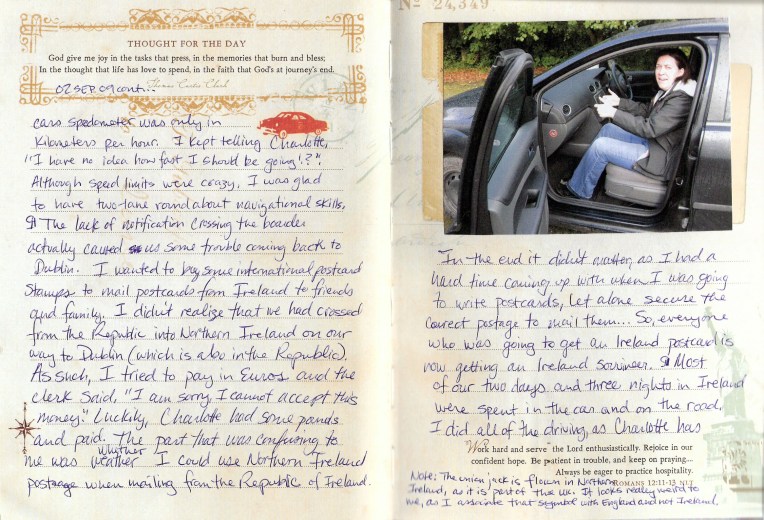 THOUGHT FOR THE DAY
God give me joy in the tasks that press, in the memories that burn and bless;
In the thought that life has love to spend, in the faith that God's at journey's end.
Thomas Curtis Clark
02 SEP 09 cont...
cars spedometer was only in
Kilometers per hour. I kept telling Charlotte,
"I have no idea how fast I should be going!?".
Although speed limits were crazy, I was glad
to have two-lane roundabout navigational skills.
¶ The lack of notification crossing the boarder
actually caused us some trouble coming back to
Dublin. I wanted to buy some international postcard
stamps to mail postcards from Ireland to friends
and family. I didn't realize that we had crossed
from the Republic into Northern Ireland on our
way to Dublin (which is also in the Republic).
As such, I tried to pay in Euros and the
clerk said, "I am sorry I cannot accept this
money." Luckily, Charlotte had some pounds
and paid. The part that was confusing to
whither
me was weather I could use Northern Ireland
postage when mailing from the Republic of Ireland.
Nº 24,349
In the end it didn't matter, as I had a
hard time coming up with when I was going
to write postcards, let alone secure the
correct postage to mail them... So, everyone
who was going to get an Ireland postcard is
now getting an Ireland souvineer. ¶ Most
of our two days and three nights in Ireland
were spent in the car and on the road.
I did all of the driving, as Charlotte has
Work hard and serve the Lord enthusiastically. Rejoice in our
confident hope. Be patient in trouble, and keep on praying...
Always be eager to practice hospitality.
ROMANS 12:11-13 NLT
Note: The union jack is flown in Northern
Ireland, as it is part of the UK. It looks really weird to
me, as I associate that symbol with England and not Ireland.